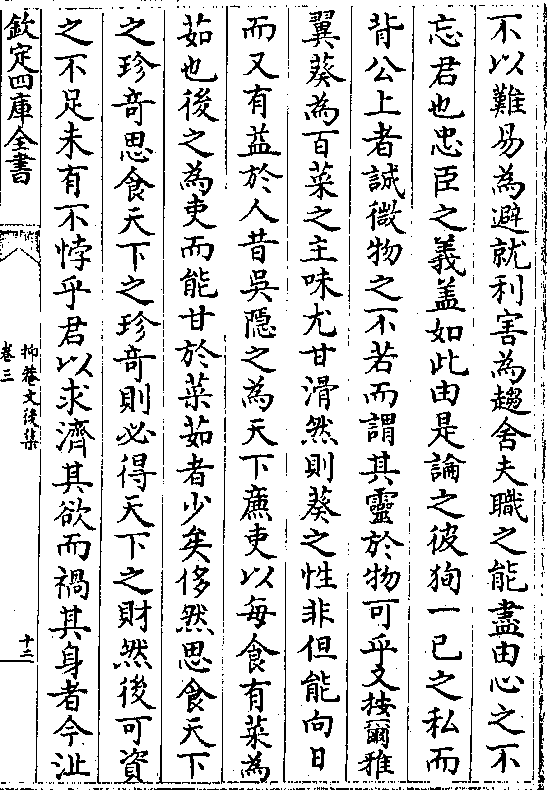 不以難易為避就利害為趨舍夫職之能盡由心之不
忘君也忠臣之義盖如此由是論之彼狥一已之私而
背公上者誠微物之不若而謂其靈於物可乎又按爾雅
翼葵為百菜之主味尤甘滑然則葵之性非但能向日
而又有益於人昔吳隱之為天下廉吏以每食有菜為
茹也後之為吏而能甘於菜茹者少矣侈然思食天下
之珍奇思食天下之珍奇則必得天下之財然後可資
之不足未有不悖乎君以求濟其欲而禍其身者今沚
欽定四庫全書
抑菴文後集
卷三
十二